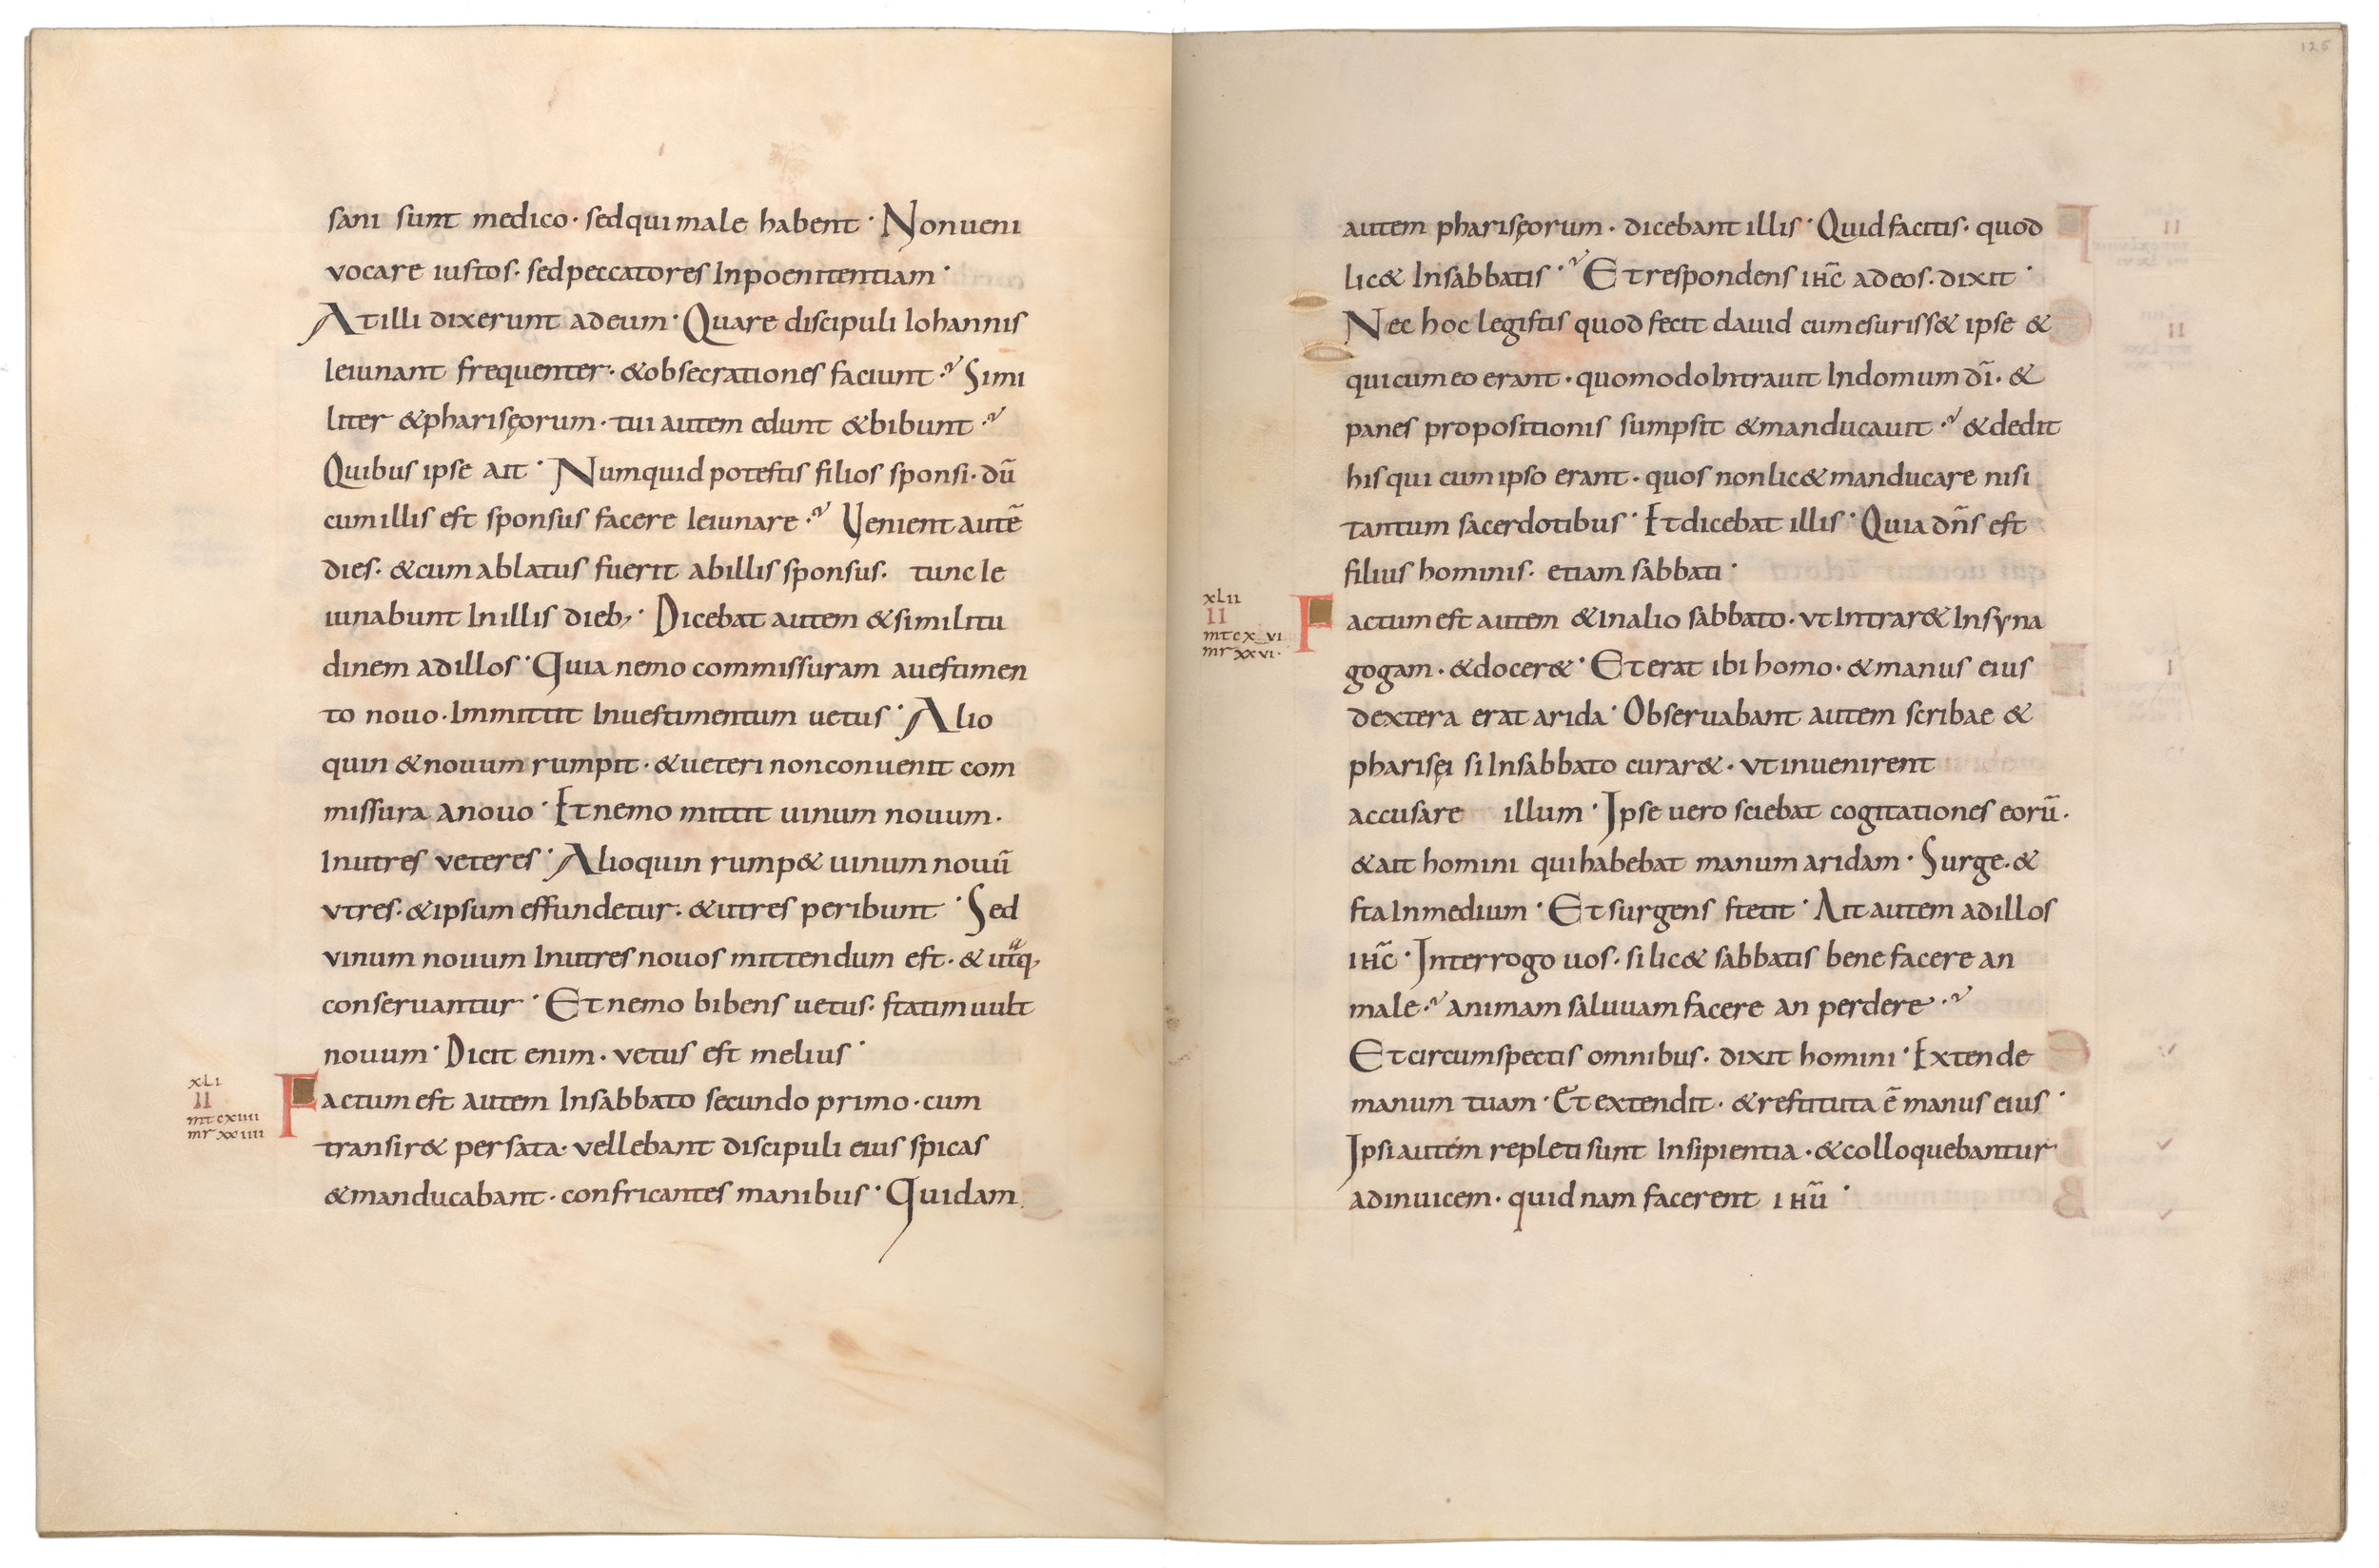 sani sunt medico · sed qui male habent · Non ueni
vocare iustos · sed peccatores In poenitentiam ·
At illi dixerunt ad eum · Quare discipuli Iohannis
Ieiunant frequenter · & obsecrationes faciunt · Simi
liter & pharisęorum · tui autem edunt & bibunt ·
Quibus ipse ait · Numquid potestis filios sponsi · dū
cum illis est sponsus facere Ieiunare · Uenient autē
dies · & cum ablatus fuerit ab illis sponsus · tunc Ie
iunabunt In illis dieb; · Dicebat autem & similitu
dinem ad illos · Quia nemo commissuram a uestimen
to nouo · Immittit In uestimentum uetus · Alio
quin & nouum rumpit · & ueteri non conuenit com
missura a nouo · Et nemo mittit uinum nouum ·
In utres veteres · Alioquin rump& uinum nouū
vtres · & ipsum effundetur · & utres peribunt · Sed
vinum nouum In utres nouos mittendum est · & utͣq;
conservantur · Et nemo bibens uetus · statim uult
nouum · Dicit enim · vetus est melius ·
xLI
II
mt cxiiii
mr xxiiii
Factum est autem In sabbato secundo primo · cum
transir& per sata · vellebant discipuli eius spicas
& manducabant · confricantes manibus · Quidam
125
autem pharisęorum · dicebant illis · Quid facitis · quod
lic& In sabbatis · Et respondens ihc̄ ad eos · dixit ·
Nec hoc legistis quod fecit dauid cum esuriss& ipse &
qui cum eo erant · quomodo Intrauit In domum dī · &
panes propositionis sumpsit & manducauit · & dedit
his qui cum ipso erant · quos non lic& manducare nisi
tantum sacerdotibus · Et dicebat illis · Quia dn̄s est
filius hominis · etiam sabbati ·
xLII
II
mt cx vi
mr xxvi ·
Factum est autem & In alio sabbato · vt Intrar& In syna
gogam · & docer& · Et erat ibi homo · & manus eius
dextera erat arida · Obseruabant autem scribae &
pharisęi si In sabbato curar& · vt inuenirent
accusare illum · Ipse uero sciebat cogitationes eorū ·
& ait homini qui habebat manum aridam · Surge · &
sta In medium · Et surgens stetit · Ait autem ad illos
ihc̄ · Interrogo uos · si lic& sabbatis bene facere an
male · animam saluuam facere an perdere ·
Et circumspectis omnibus · dixit homini · Extende
manum tuam · Et extendit · & restituta ē manus eius ·
Ipsi autem repleti sunt Insipientia · & colloquebantur
adinuicem · quid nam facerent ihū ·